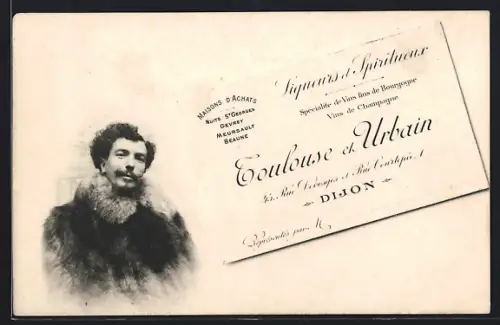 MAISONS D'ACHATS
NUITS ST GEORGES
GEVREY
MEURSAULT
BEAUNE
Liqueurs & Spiritueux
Spécialité de Vins fins de Bourgogne
Vins de Champagne
Toulouse et Urbain
Rue Devosges et Rue Courtépée, 1
DIJON
Représentés par M